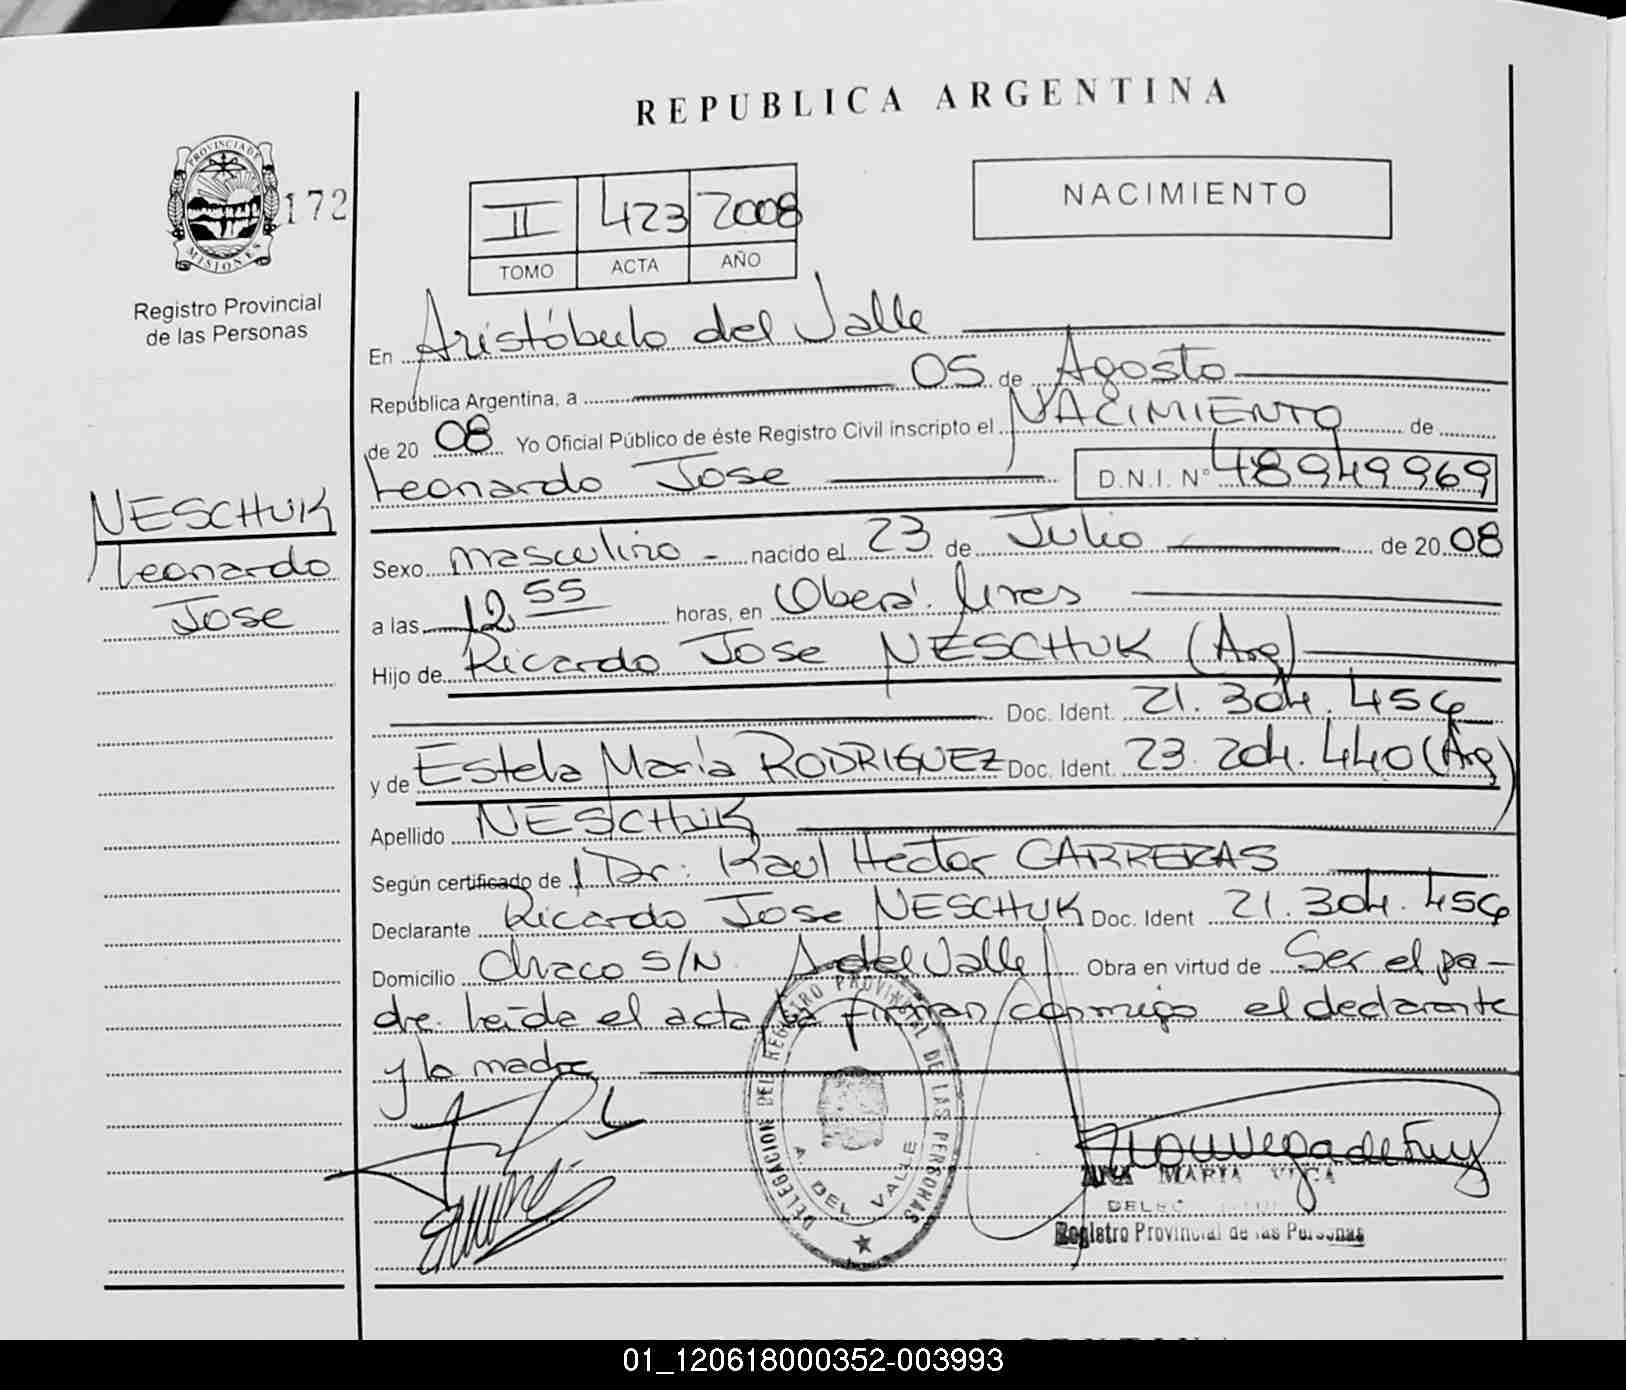 REPUBLICA ARGENTINA
PROVINCIA DE
MISIONES
172
Registro Provincial
de las Personas
II 423 2008
TOMO ACTA AÑO
NACIMIENTO
NESCHUK
Leonardo
Jose
En Aristóbulo del Valle
República Argentina, a 05 de Agosto
de 20 08 Yo Oficial Público de éste Registro Civil inscripto el NACIMIENTO de
Leonardo Jose D.N.I. Nº 48949969
Sexo masculino - nacido el 23 de Julio de 20 08
a las 12 55 horas, en Oberá.
Hijo de Ricardo Jose NESCHUK (Arg)
Doc. Ident. 21.304.456
y de Estela María RODRIGUEZ Doc. Ident. 23.204.440 (Arg)
Apellido NESCHUK
Según certificado de Dr: Raul Hector CARRERAS
Declarante Ricardo Jose NESCHUK Doc. Ident 21.304.456
Domicilio Chaco S/N A. del Valle Obra en virtud de Ser el pa-
dre. Leída el acta, la firman conmigo el declarante
y la madre
DELEGACION DEL REGISTRO PROVINCIAL DE LAS PERSONAS
A. DEL VALLE
ANA MARIA
Registro Provincial de las Personas
01_120618000352-003993